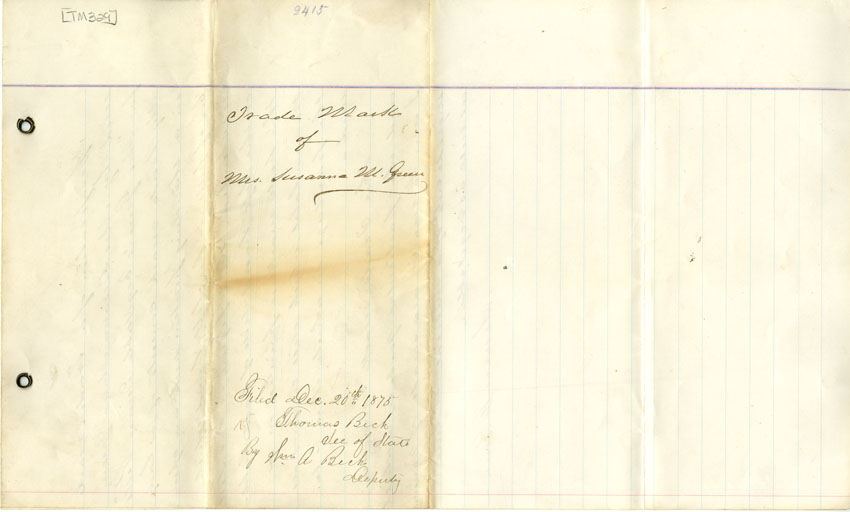 [TM329]
2415
Trade Mark
of
Mrs. Susanna M. Green
Filed Dec. 20th 1875
Thomas Beck
Sec of State
By Wm A Beck
Deputy